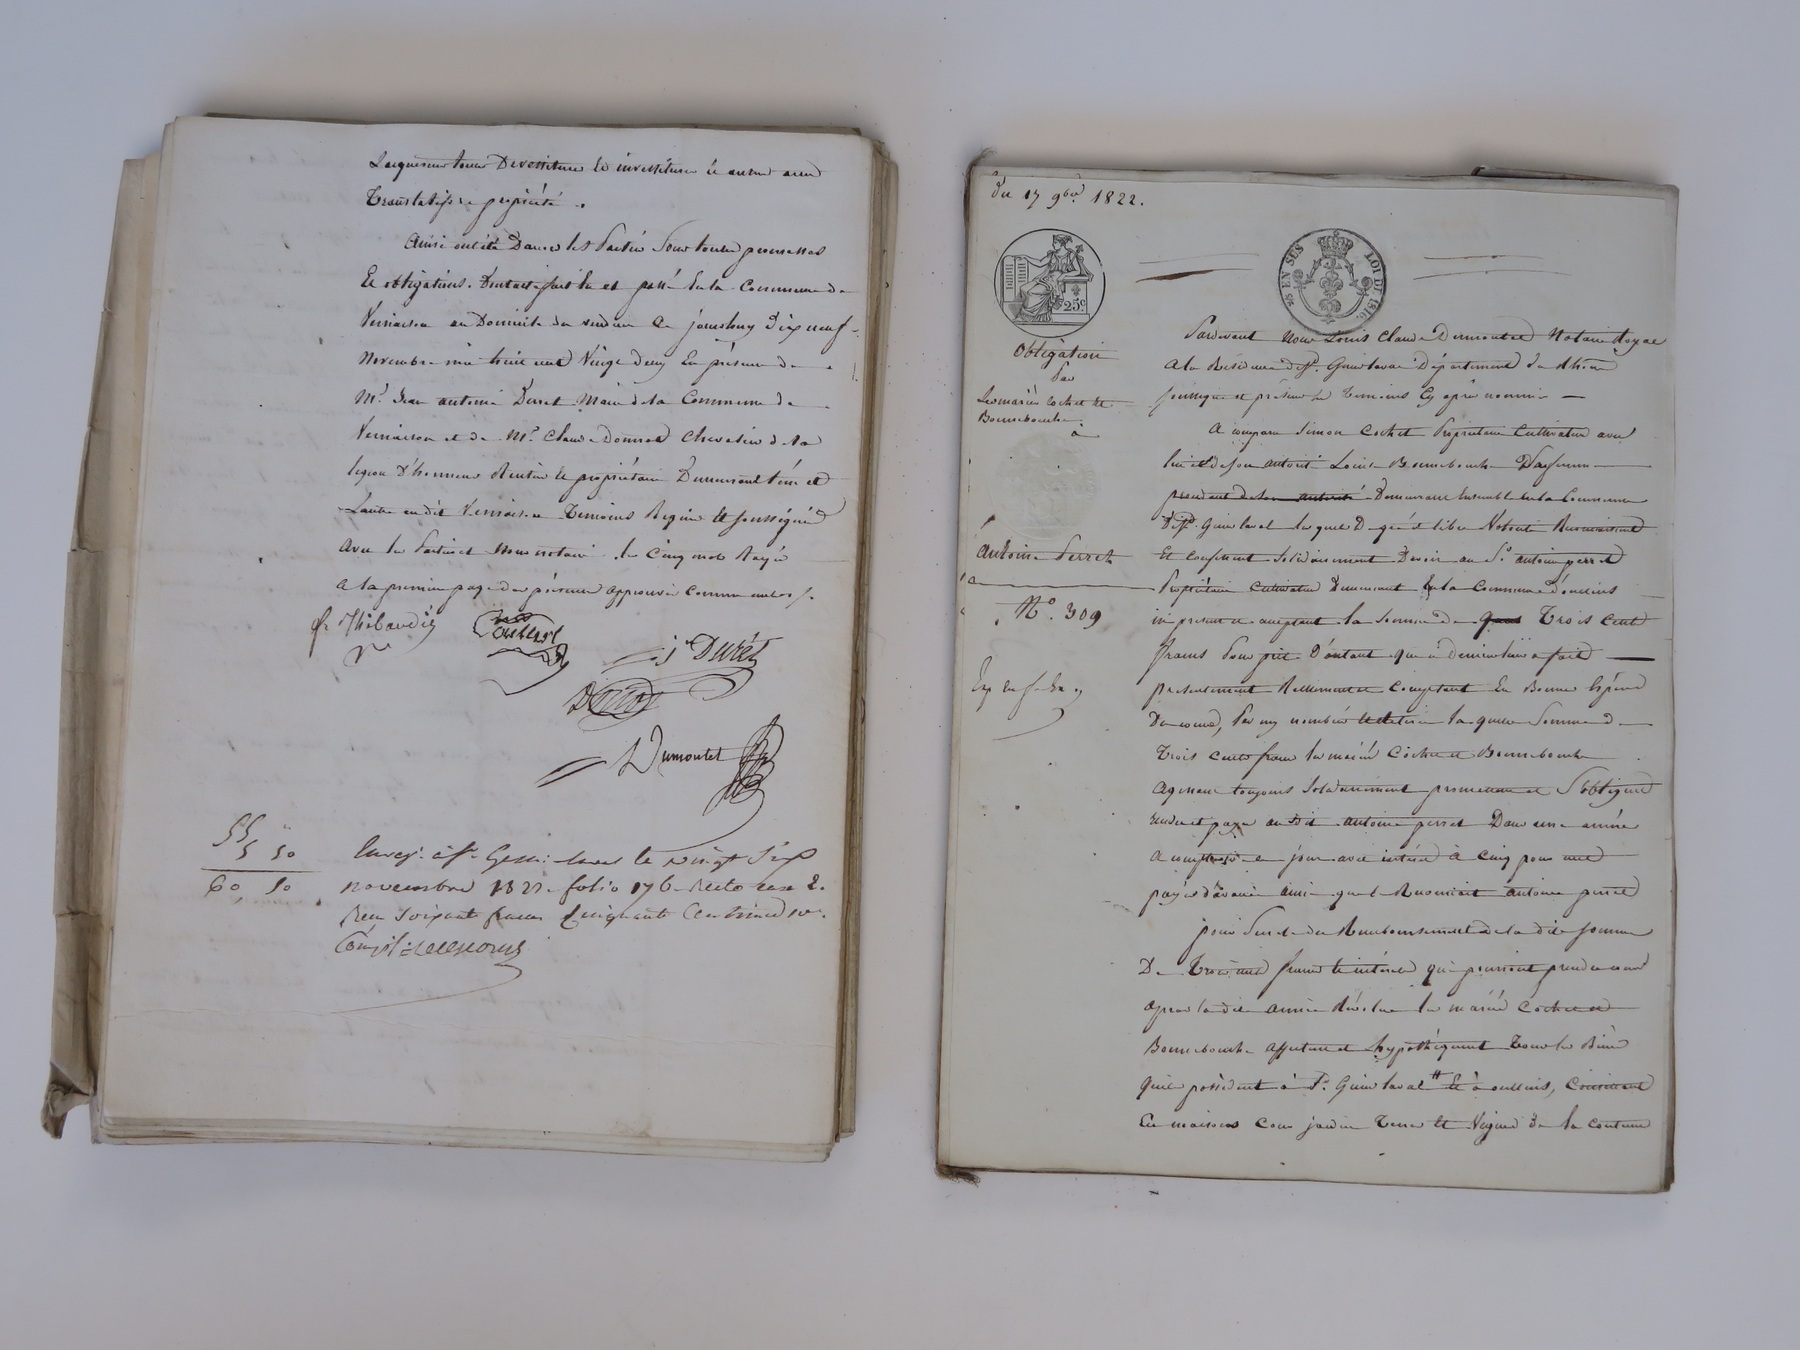 Devestiture et investiture et autres
Translatifs de propriété.
Ainsi entété Dacer les Parties Sous toutes promesses
Et obligations. Dont acte fait lu et passé dans la Commune de
Vernaison au Domicile du vendeur Ce jourd'huy Dix neuf
Novembre mil huit cent Vingt Deux En présence de
Mr. Jean antoine Duret Maire de la Commune de
Vernaison et de Mr. Claude Donnet Chevalier de la
légion D'honneur Rentier et propriétaire Demeurant
L'autre au dit Vernaison Temoins Requis Et soussignés
avec les Parties et Nous notaire. les Cinq mots Rayés
a la premiere page des présentes approuvés comme nuls /.
Thibaudier
j. Duret
Dumoutet
55
5 50
60, 50
Enreg. à St. Genis Laval le vingt six
novembre 1822. folio 176 Recto case 2.
Reçu soixante francs Cinquante Centimes
Du 17 9bre 1822.
25 EN SUS
LOI DE 1816.
25c
Obligation
Par
Les mariés Cochet et
Bonnebouche
à
Antoine Perret
N°. 309
Pardevant Nous Louis Claude Dumoutet Notaire Royal
a la Résidence de St. Genis laval Département du Rhône
soussigné et présens les Temoins Cy après nommés
A comparu Simon Cochet Propriétaire Cultivateur avec
lui et de son autorité Louise Bonnebouche Sa femme
procédant de son autorité Demeurant Ensemble en la Commune
De St. Genis laval lesquels De gré et libre Volonté Reconnaissent
Et Confessent Solidairement Devoir au Sr. antoine perret
Propriétaire Cultivateur Demeurant En la Commune d'oullins
ici present et acceptant la Somme de Trois Cent
francs Pour prêt D'autant que ce dernier leur a fait
presentement Réellement et Comptant En Bonnes Espèces
De cours, laquelle Somme de
Trois cents francs les mariés Cochet et Bonnebouche
agissant toujours Solidairement promettent et S'obligent
rendre et payer au dit antoine perret Dans une année
a compter de ce jour avec intérêt à Cinq pour cent
payés d'avance ainsi que le Reconnait antoine perret
pour Sureté du Remboursement de la dite somme
De Trois cents francs et intérêts qui pourront prendre cours
après la dite année Révolue les mariés Cochet et
Bonnebouche affectent et hypothèquent Tous les Biens
qu'ils possèdent à St. Genis laval Et à oullins, Consistant
En maisons Cour jardin Terres Et Vignes de la contenue